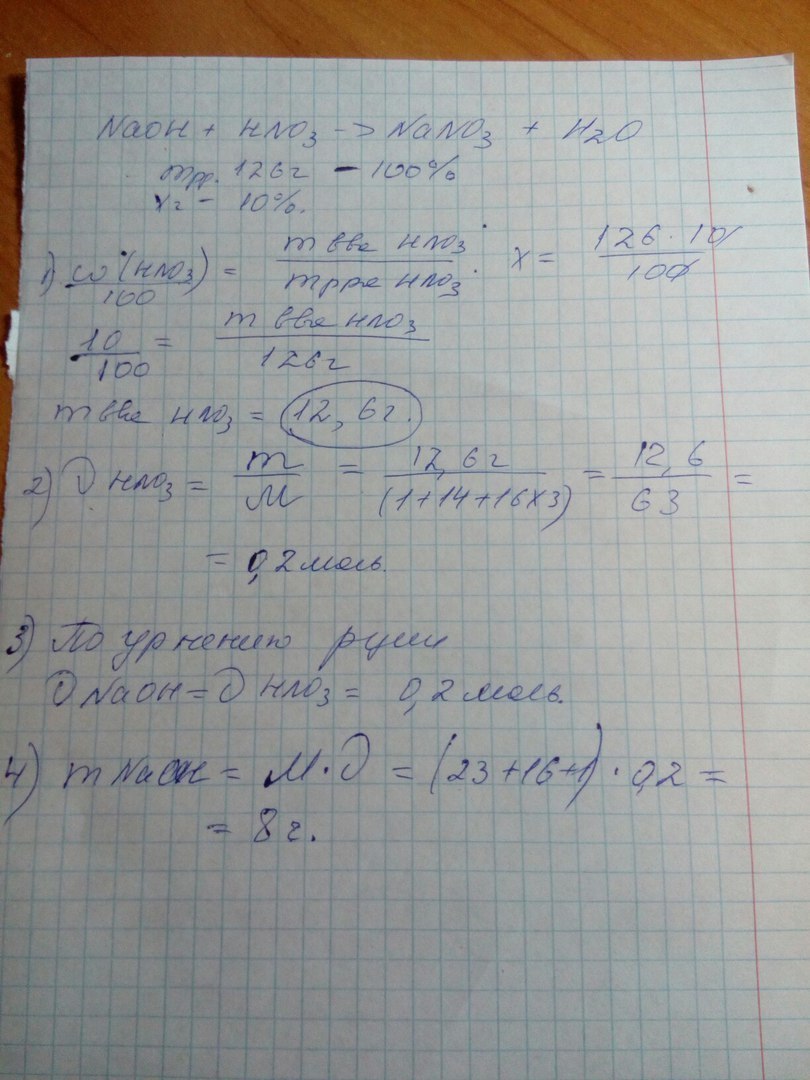 NaOH + HNO3 -> NaNO3 + H2O
mрр. 126г - 100%
xг - 10%.
1) ω(HNO3)/100 = mвва HNO3/mрра HNO3 x = 126·10/100
10/100 = mвва HNO3/126г
mвва HNO3 = 12,6г.
2) ν HNO3 = m/M = 12,6г/(1+14+16x3) = 12,6/63 =
= 0,2моль.
3) По ур нению рции
ν NaOH = ν HNO3 = 0,2моль.
4) m NaOH = M·ν = (23+16+1)·0,2 =
= 8г.